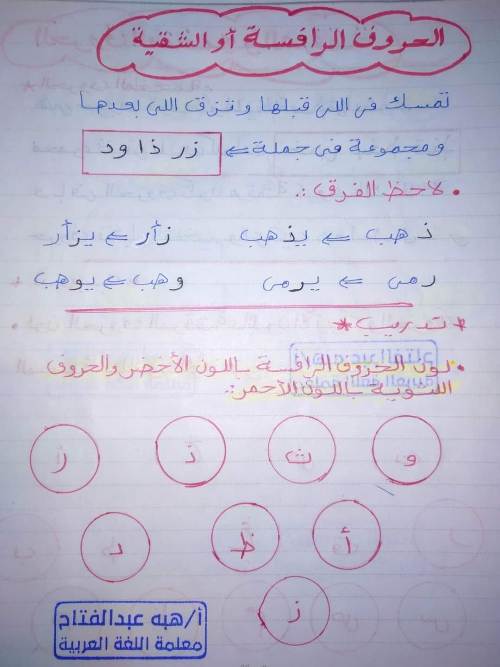 الحروف الرافسة أو الشقية
تمسك فى اللى قبلها وتزق اللى بعدها
ومجموعة فى جملة ⇐ زر ذا ود
• لاحظ الفرق :.
ذهب ⇐ يذهب    زأر ⇐ يزأر
رمى ⇐ يرمى    وهب ⇐ يوهب
* تدريب *
• لون الحروف الرافسة باللون الأخضر والحروف
باللون الأحمر:.
و ث ذ ر
أ ظ د
ز
أ/هبه عبدالفتاح
معلمة اللغة العربية